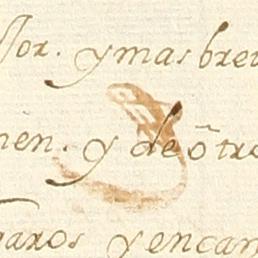 lor. y mas brev
men. y de õtro
garos y encan